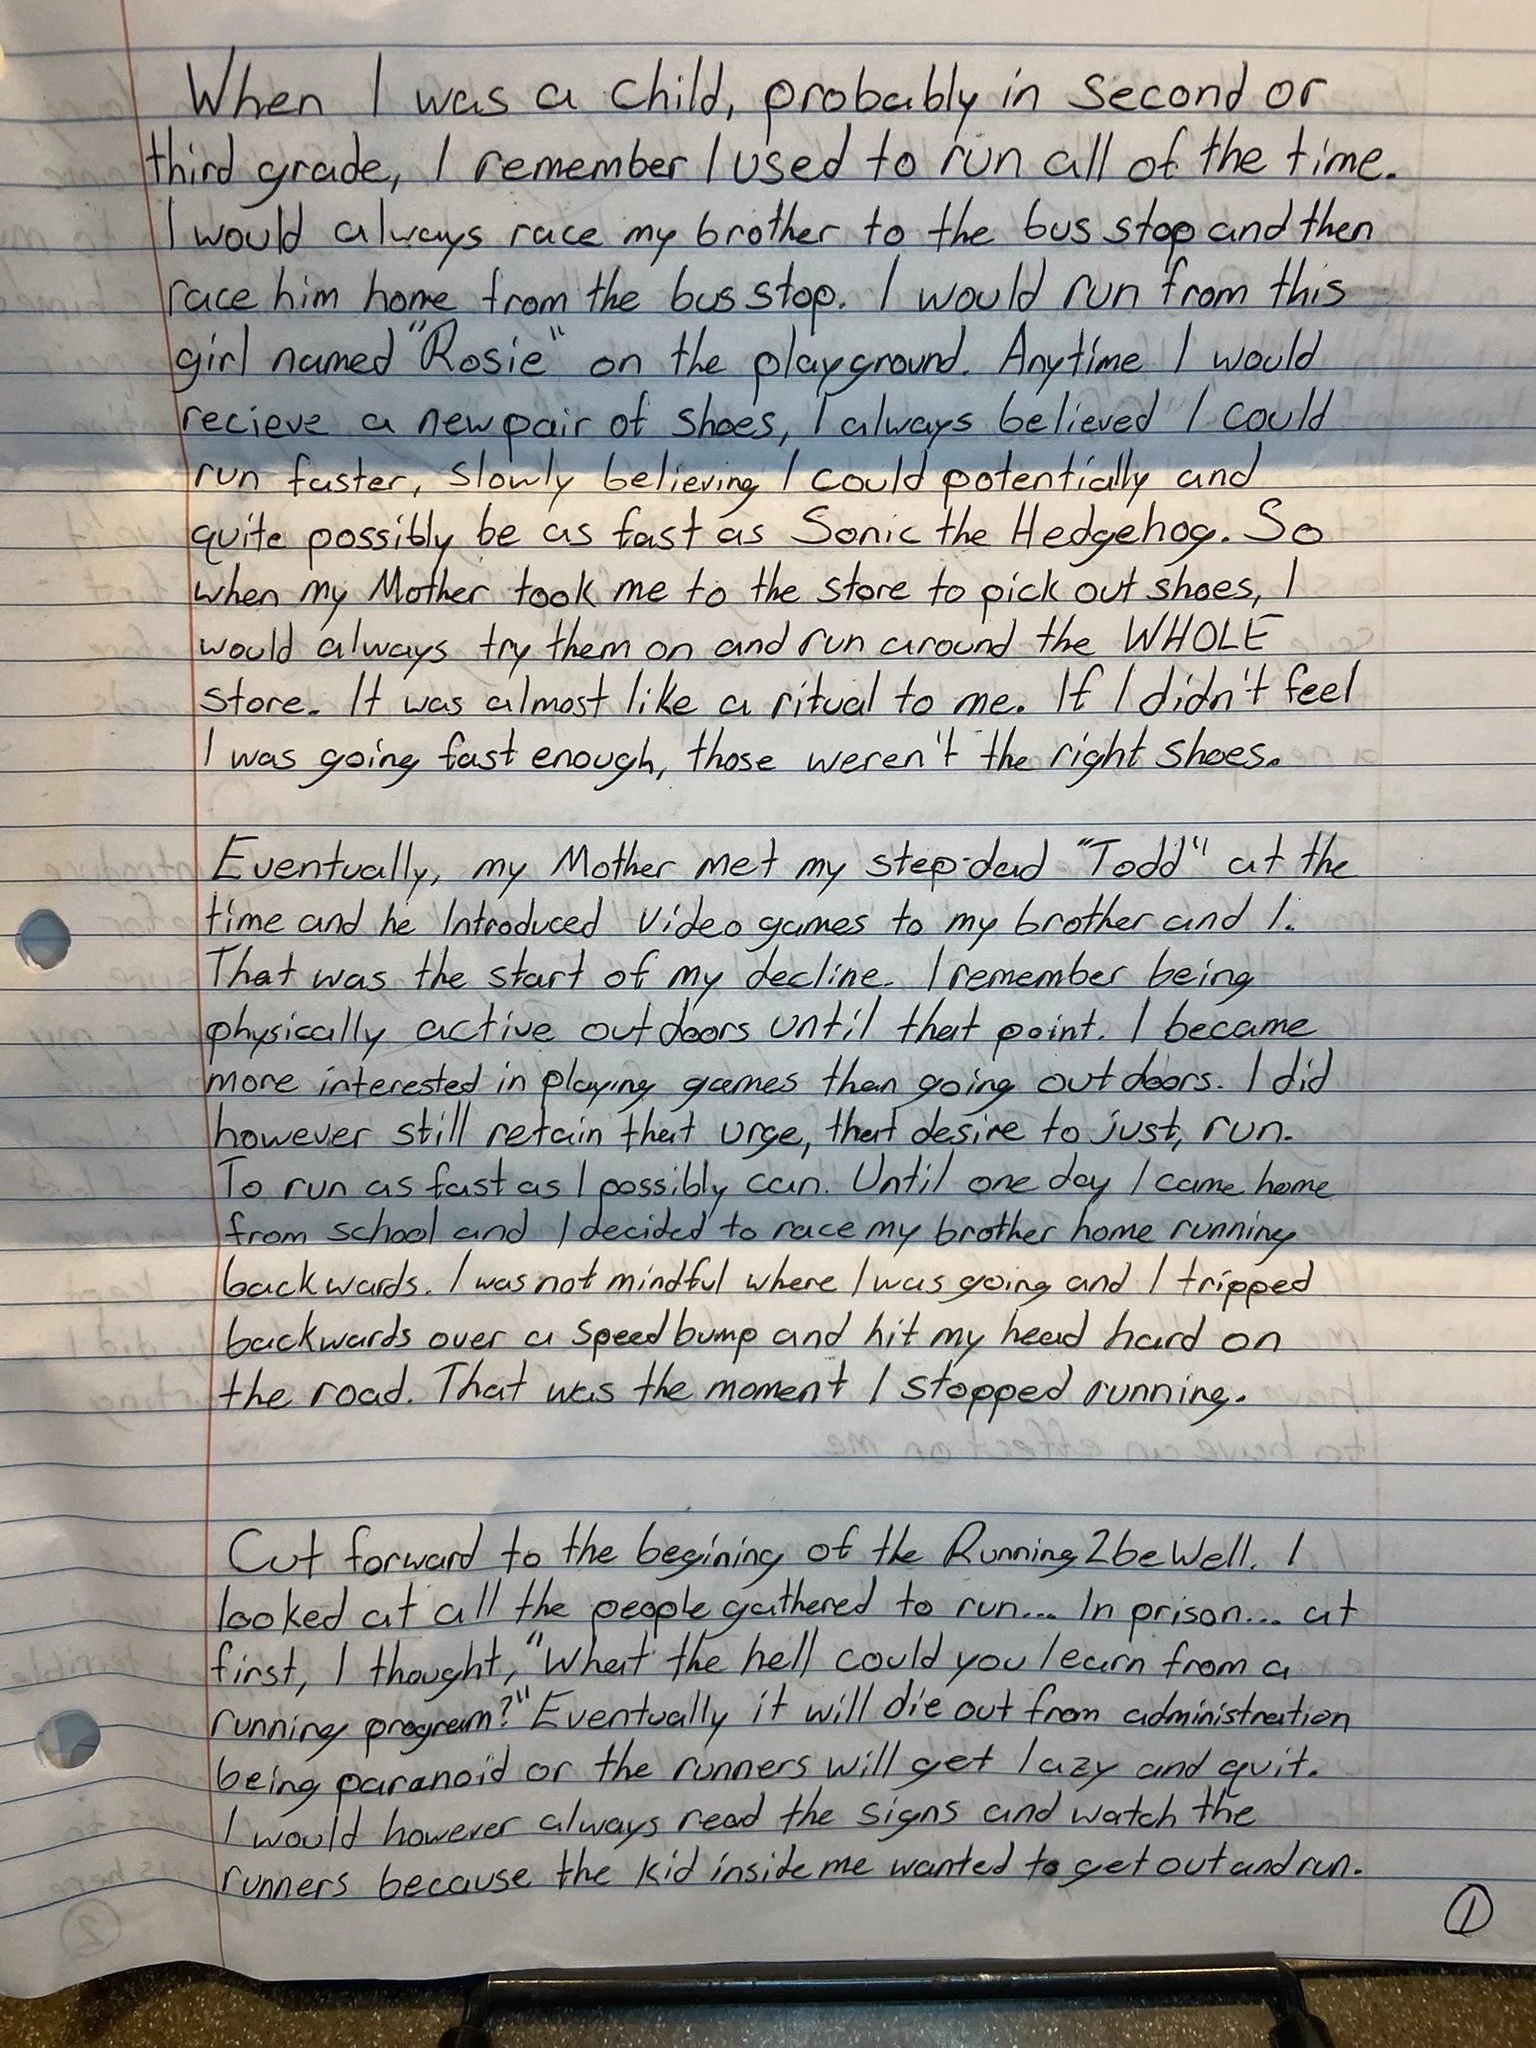 When I was a child, probably in second or
third grade, I remember I used to run all of the time.
I would always race my brother to the bus stop and then
race him home from the bus stop. I would run from this
girl named "Rosie" on the playground. Anytime I would
recieve a new pair of shoes, I always believed I could
run faster, slowly believing I could potentially and
quite possibly be as fast as Sonic the Hedgehog. So
when my Mother took me to the store to pick out shoes, I
would always try them on and run around the WHOLE
store. It was almost like a ritual to me. If I didn't feel
I was going fast enough, those weren't the right shoes.
Eventually, my Mother met my step-dad "Todd" at the
time and he Introduced video games to my brother and I.
That was the start of my decline. I remember being
physically active outdoors until that point. I became
more interested in playing games than going outdoors. I did
however still retain that urge, that desire to just, run.
To run as fast as I possibly can. Until one day I came home
from school and I decided to race my brother home running
backwards. I was not mindful where I was going and I tripped
backwards over a speed bump and hit my head hard on
the road. That was the moment I stopped running.
Cut forward to the begining of the Running2beWell. I
looked at all the people gathered to run... In prison... at
first, I thought, "What the hell could you learn from a
running program?" Eventually it will die out from administration
being paranoid or the runners will get lazy and quit.
I would however always read the signs and watch the
runners because the kid inside me wanted to get out and run.
1